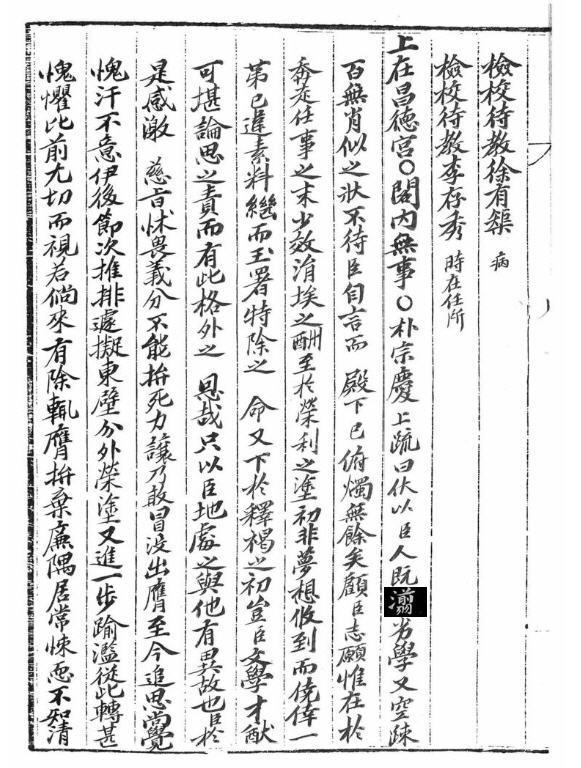 檢校待敎徐有榘 病
檢校待敎李存秀 時在任所
上在昌德宮○閤內無事○朴宗慶上疏曰伏以臣人旣劣學又空疎
百無肖似之狀不待臣自言而 殿下已俯燭無餘矣顧臣志願惟在於
奔走任事之末少效涓埃之酬至於榮利之塗初非夢想攸到而僥倖一
第已違素料繼而玉署特除之 命又下於釋褐之初豈臣文學才猷
可堪論思之責而有此格外之 恩哉只以臣地處之與他有異故也臣於
是感激 慈旨怵畏義分不能拚死力讓乃敢冒沒出膺至今追思尙覺
愧汗不意伊後節次推排遽擬東壁分外榮塗又進一步踰濫從此轉甚
愧懼比前尤切而視若倘來有除輒膺拚棄廉隅居常悚恧不知淸